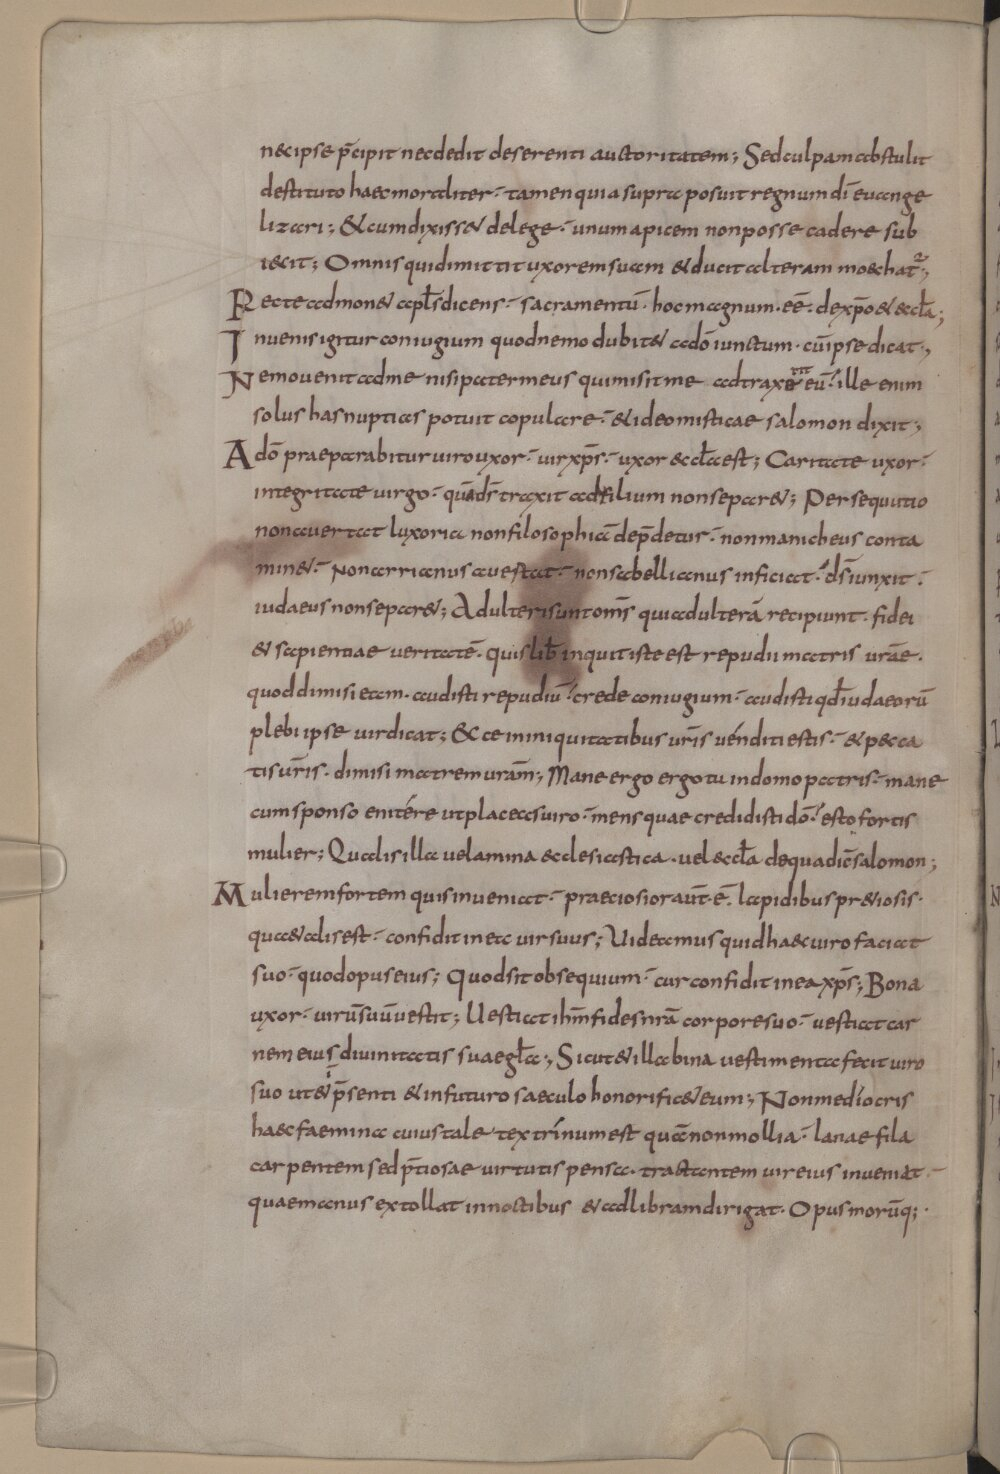 nec ipse p̄cipit nec dedit deserenti auctoritatem; Sed culpam abstulit
destituto haec moraliter· tamen quia supra posuit regnum dī euange
lizari; & cum dixiss& de lege· unum apicem non posse cadere sub
iecit; Omnis qui dimittit uxorem suam & ducit alteram moechat̄;
Recte admon& apl̄s dicens· sacramentū· hoc magnum·eē· de xp̄o & eccl̄a;
Inuenis igitur coniugium quod nemo dubit& a dō iunctum· cū ipse dicat;
Nemo uenit ad me nisi pater meus qui misit me adtraxerit eū· ille enim
solus has nuptias potuit copulare· & ideo misticae salomon dixit;
A dō praeparabitur uiro uxor· uir xp̄s· uxor ecclā est; Caritate uxor·
integritate uirgo· quā ds̄ traxit ad filium non separ&; Persequutio
non auertat luxoria non filosophia dep̄detur· non manicheus conta
min&· Non arrianus auestat· non sabellianus inficiat· ds̄ iunxit·
iudaeus non separ&; Adulteri sunt om̄s qui adulterā recipiunt· fidei
& sapientiae ueritatē· quis lib̄ inquit iste est repudii matris ur̄ae·
quod dimisi eam· audisti repudiū· crede coniugium· audisti qd̄ iudaeorū
plebi ipse uir dicat; Ecce in iniquitatibus ur̄is uénditi estis· & pecca
tis ur̄is· dimisi matrem uram̄; Mane ergo ergo tu in domo patris· mane
cum sponso enitére ut placeas uiro· mens quae credidisti dō· esto fortis
mulier; Qualis illa uel amina ecclesiastica· uel eccl̄a de qua dic̄ salomon;
Mulierem fortem quis inueniat· praeciosior aūt·ē· lapidibus pr&iosis·
quae talis est· confidit in ea uir suus; Uideamus quid haec uiro faciat
suo· quod opus eius; Quod sit obsequium· cur confidit in ea xp̄s; Bona
uxor· uirū suū uestit; Uestiat ihm̄ fides nr̄a corpore suo· uestiat car
nem eius diuinitatis suae gl̄a; Sicut & illa bina uestimenta fecit uiro
suo ut & in p̄senti & in futuro saeculo honorific& eum; Non mediocris
haec faemina cuius tale textrinum est quae non mollia· lanae fila
carpentem sed p̄tiosae uirtutis pensa· tractantem uir eius inueniat·
quae manus extollat in noctibus & ad libram dirigat· Opus morūq;·